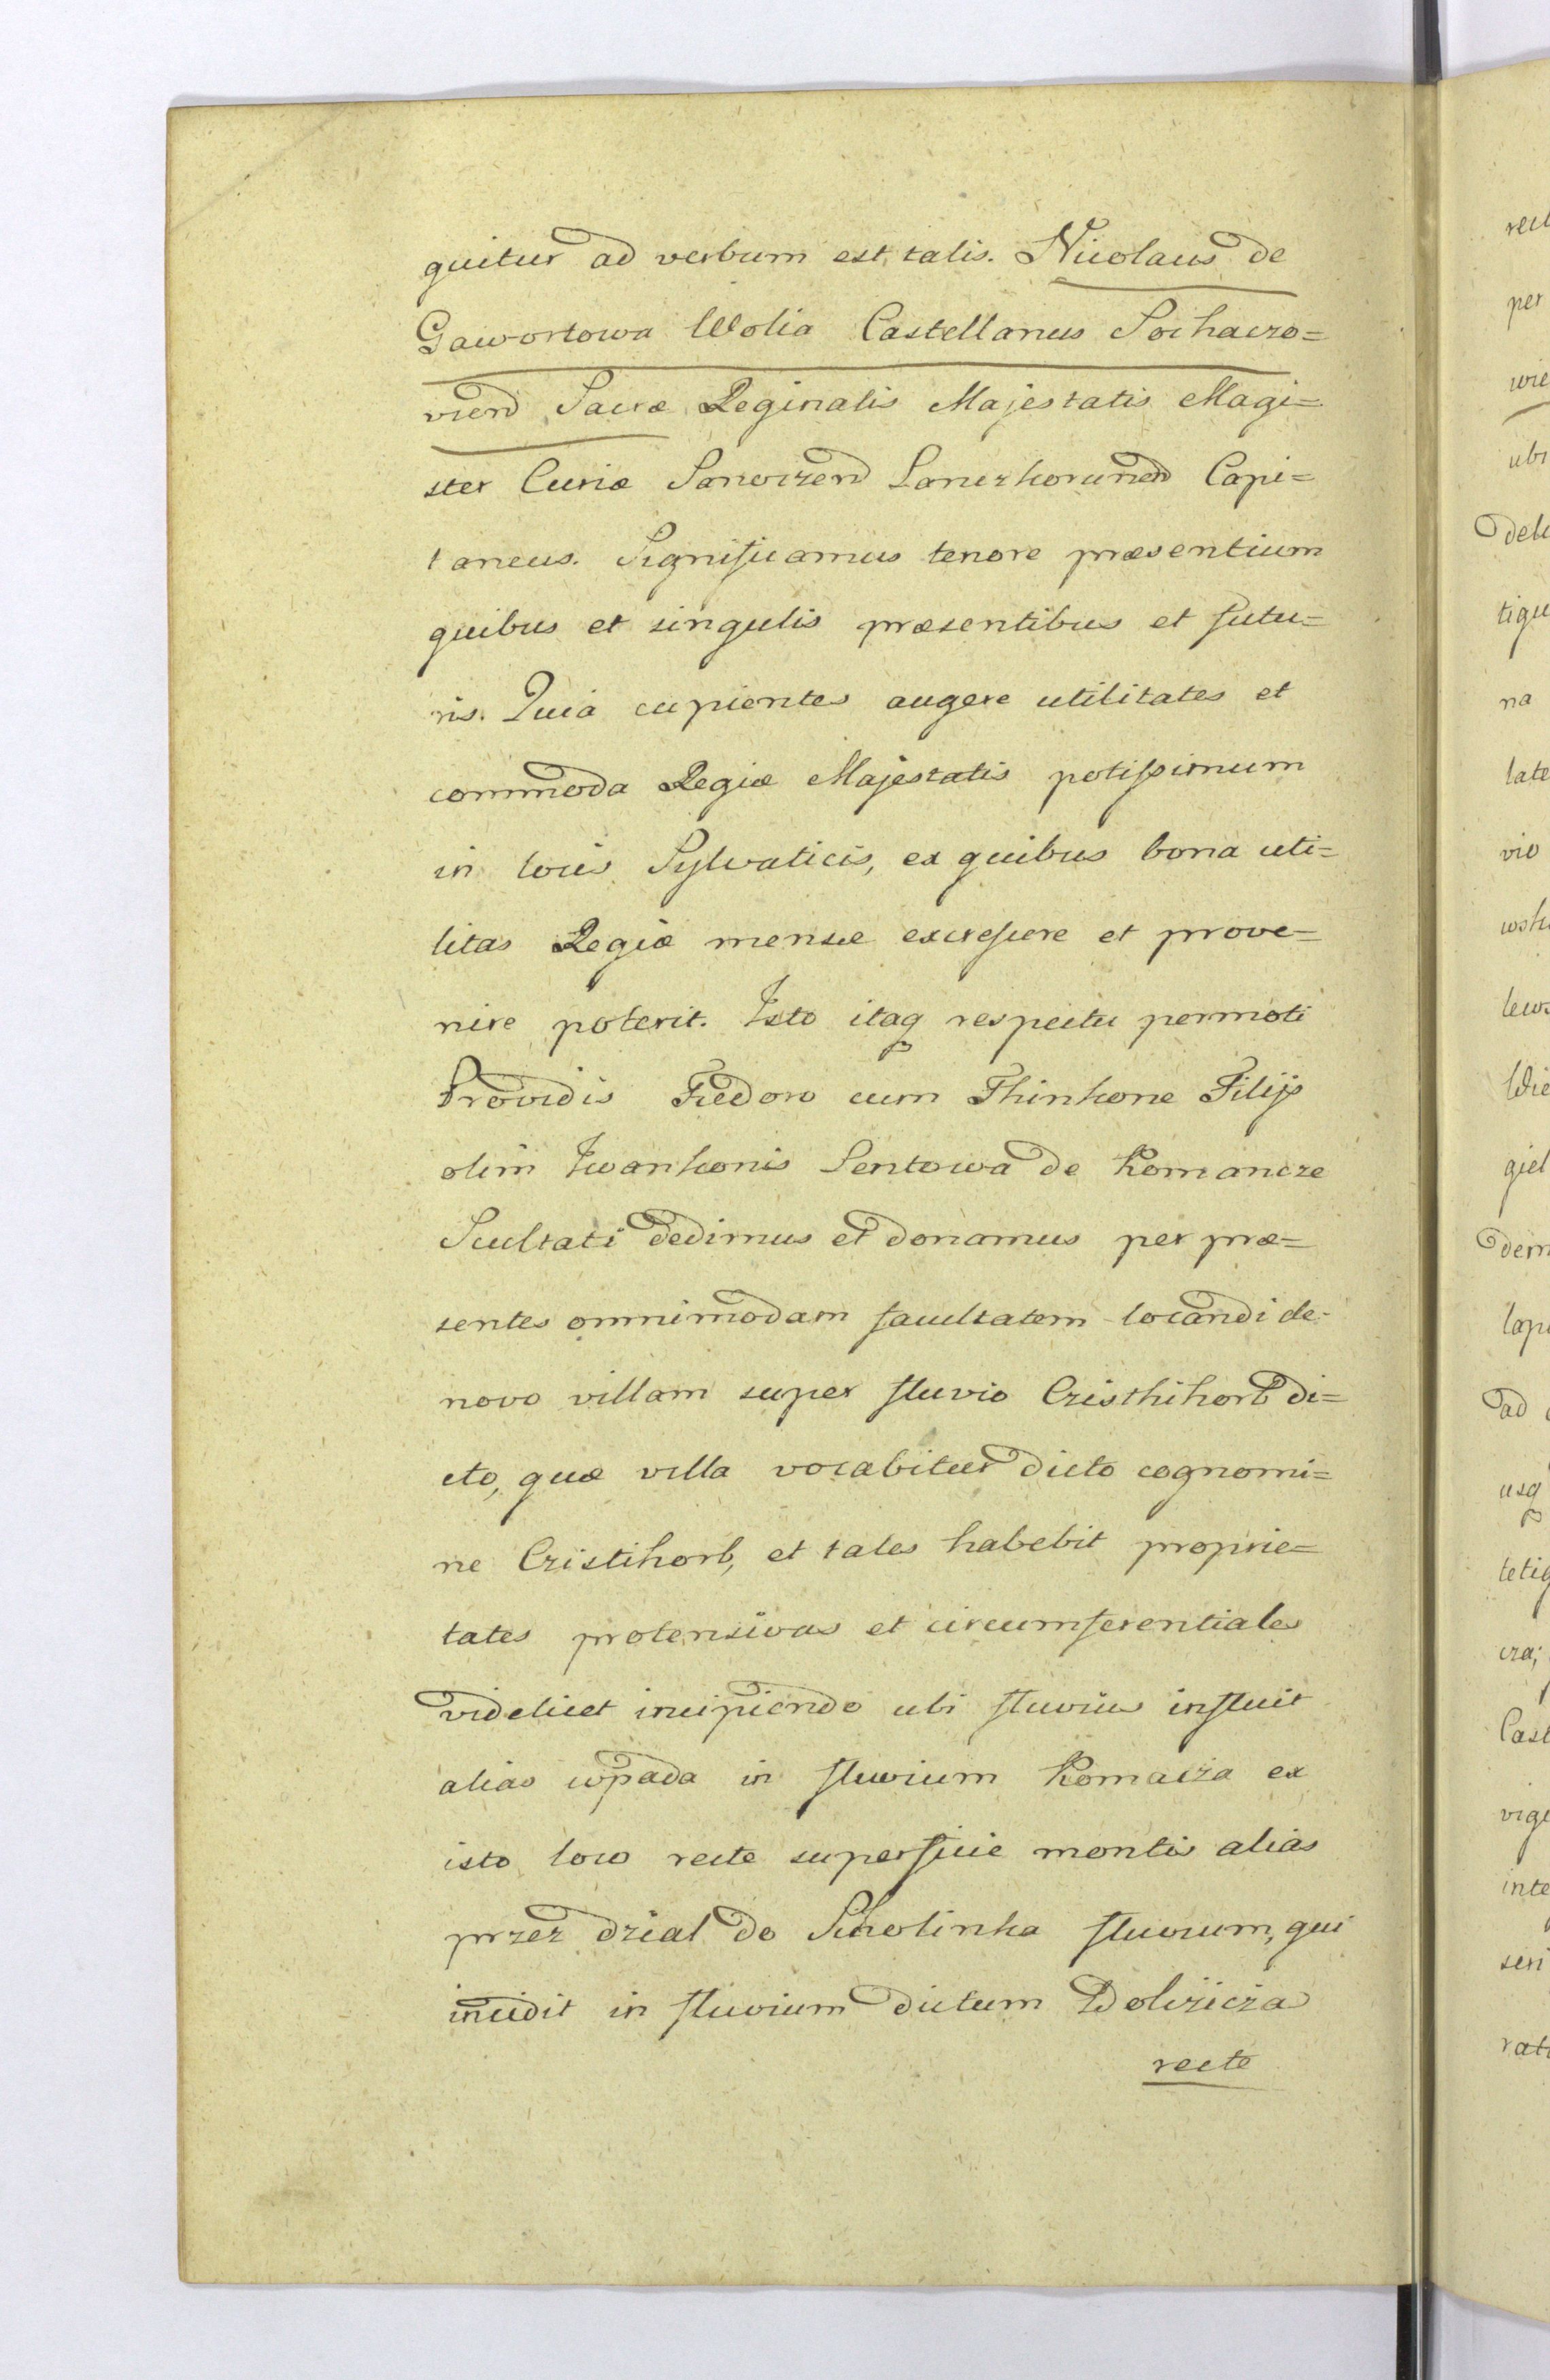 quitur ad verbum est talis. Nicolaus de
Gawortowa Wolia Castellanus Sochaczo=
vien Sacræ Reginalis Majestatis Magi=
ster Curiæ Sanoczen Lanczkorunen Capi=
taneus. Significamus tenore præsentium
quibus et singulis præsentibus et futu=
ris. Quia cupientes augere utilitates et
commoda Regiæ Majestatis potissimum
in locis Sylvaticis, ex quibus bona uti=
litas Regiæ mensæ excrescere et prove=
nire poterit. Isto itaq respectu permoti
Providis Fiedoro cum Thinkone Filijs
olim Iwankonis Sentowa de Komancze
Scultati dedimus et donamus per præ=
sentes omnimodam facultatem locandi de=
novo villam super fluvio Czisthihorb di=
cto, quæ villa vocabitur dicto cognomi=
ne Czistihorb, et tales habebit proprie=
tates protensivas et circumferentiales
videlicet incipiendo ubi fluvius influit
alias wpada in fluvium Komacza ex
isto loco recte superficie montis alias
przez dzial do fluvium, qui
incidit in fluvium dictum Dolzicza
recte
rect
per
wie
ubi
tiqu
na
late
vio
giel
dem
ad
usq
cza;
Cast
inte